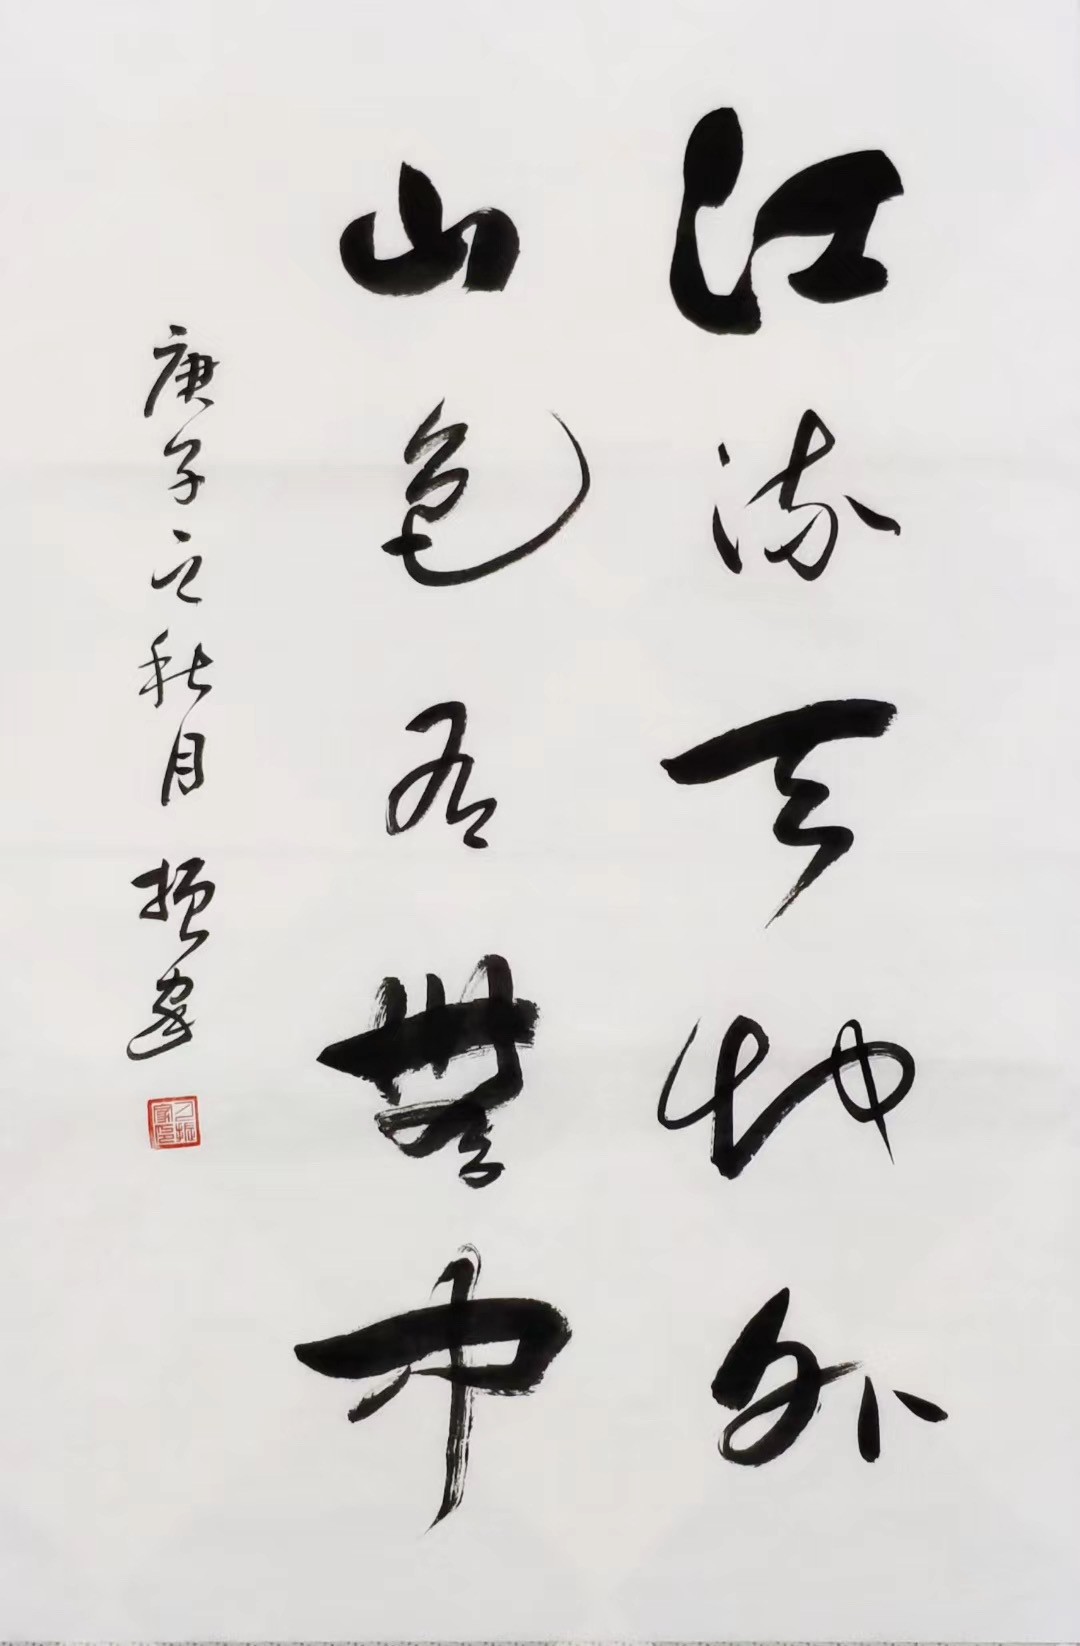 江流天地外
山色有無中
庚子之秋月振家